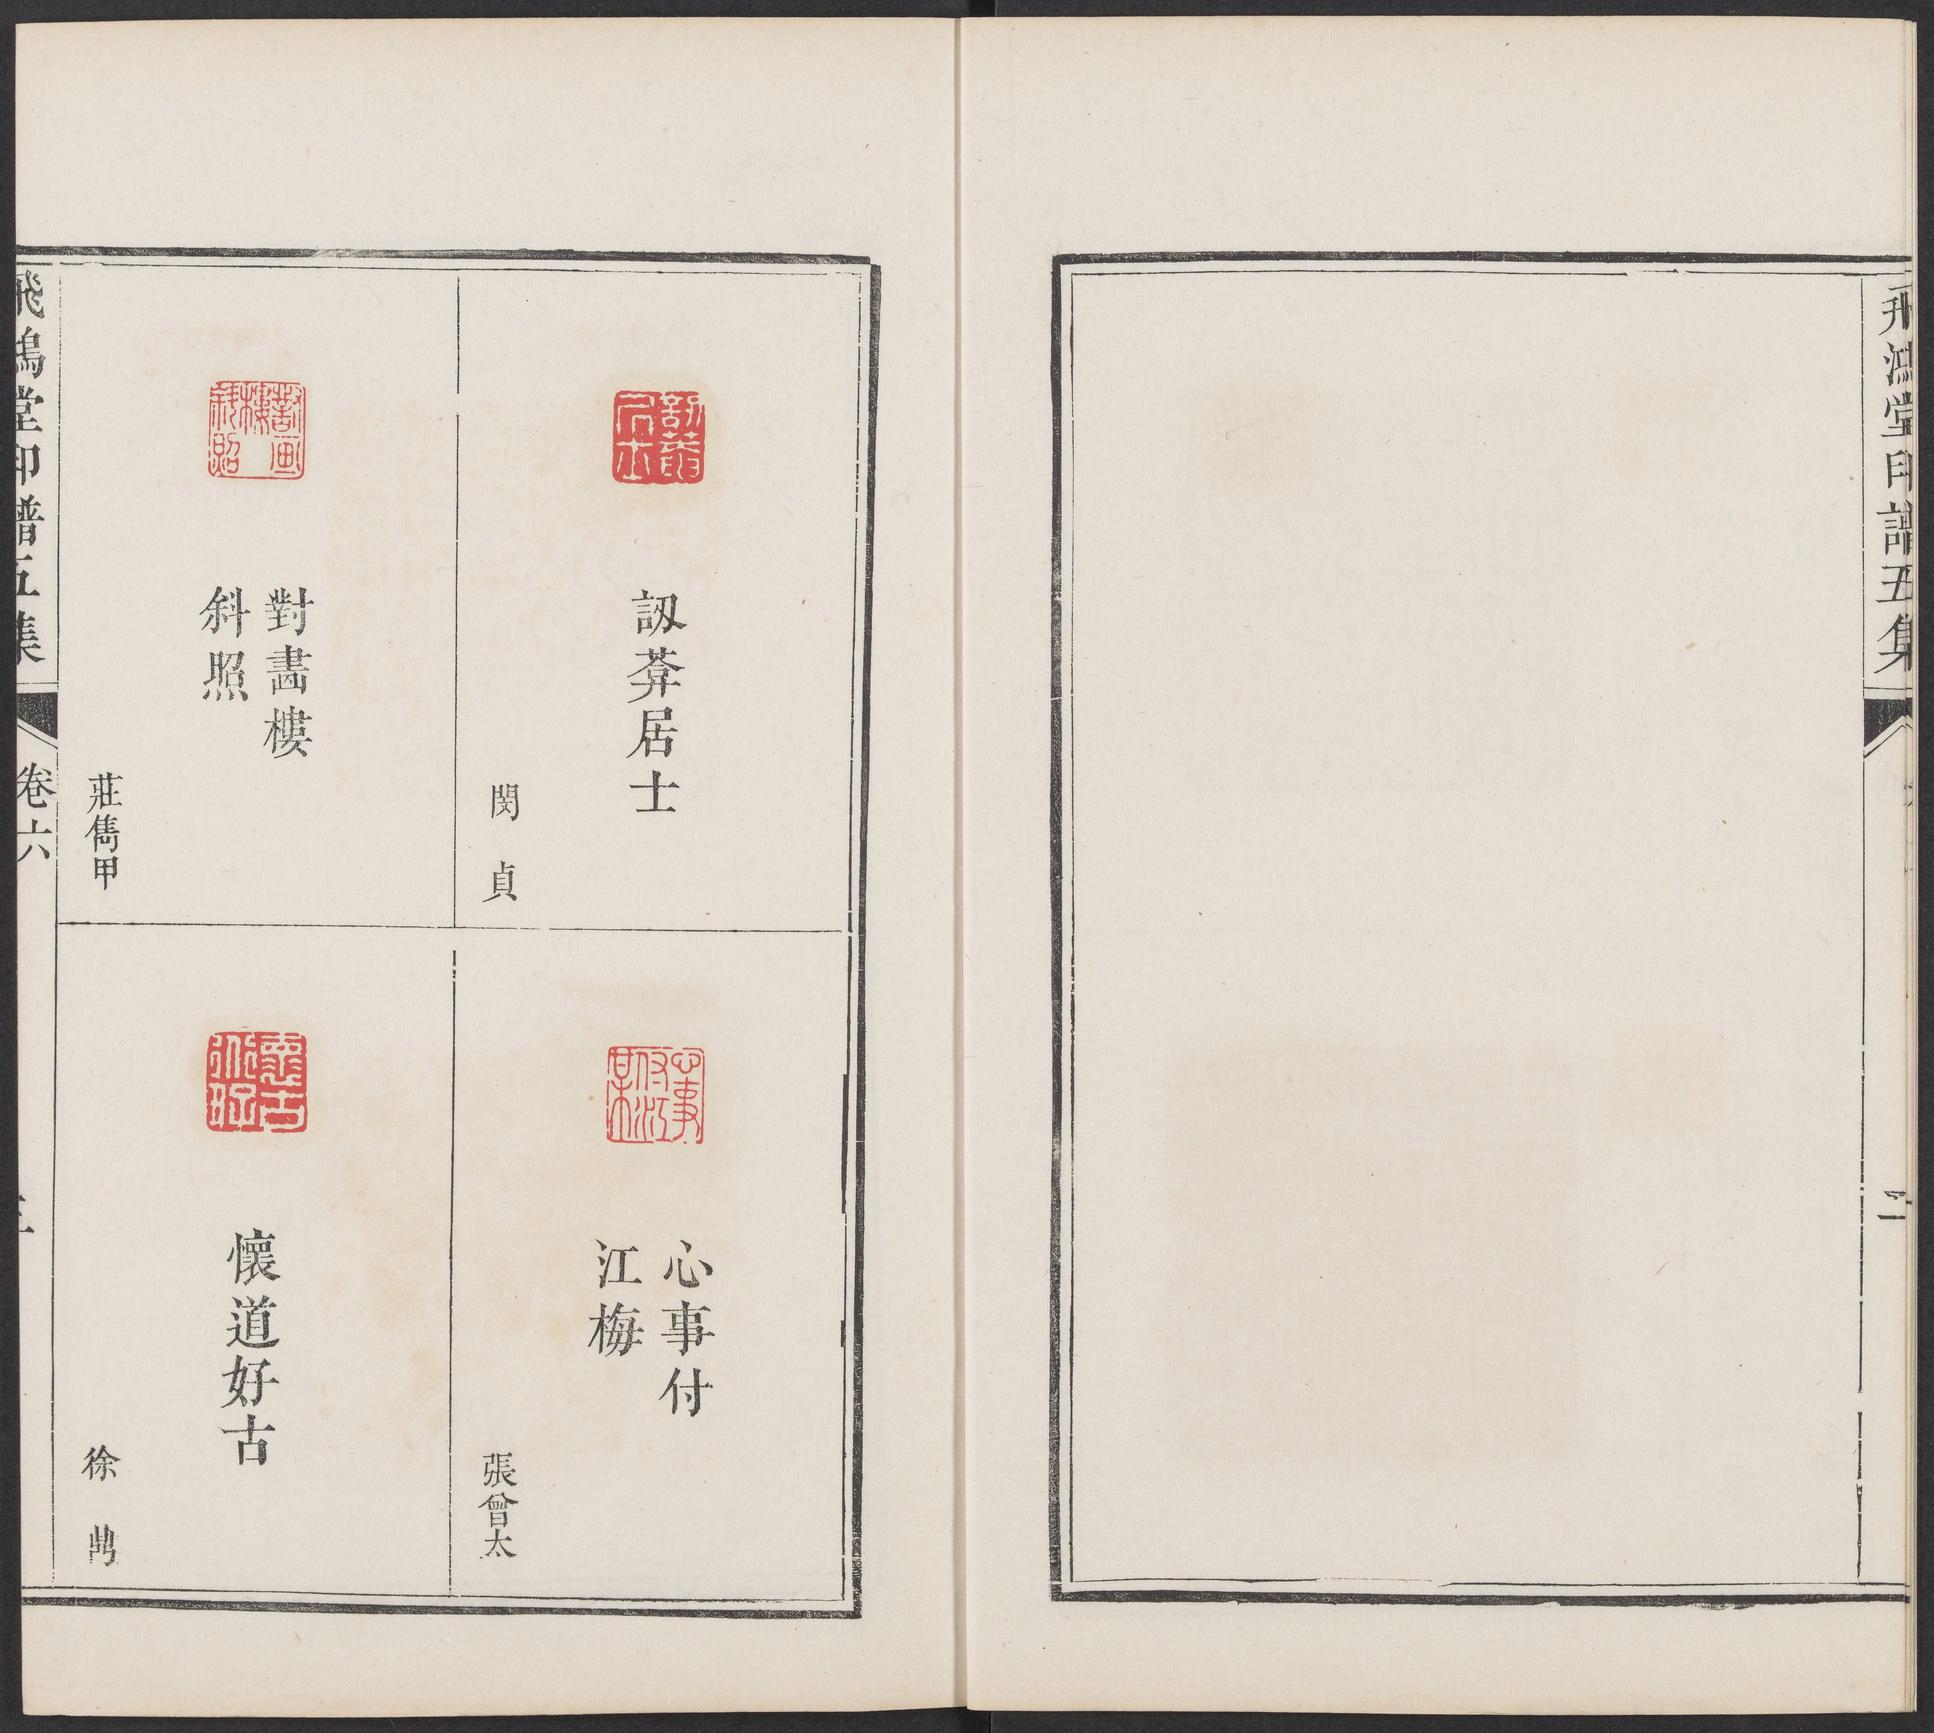 飛鴻堂印譜五集
二
訒葊居士
閔貞
心事付
江梅
張曾太
對畵樓
斜照
莊雋甲
懷道好古
徐鼎
飛鴻堂印譜五集
卷六
三